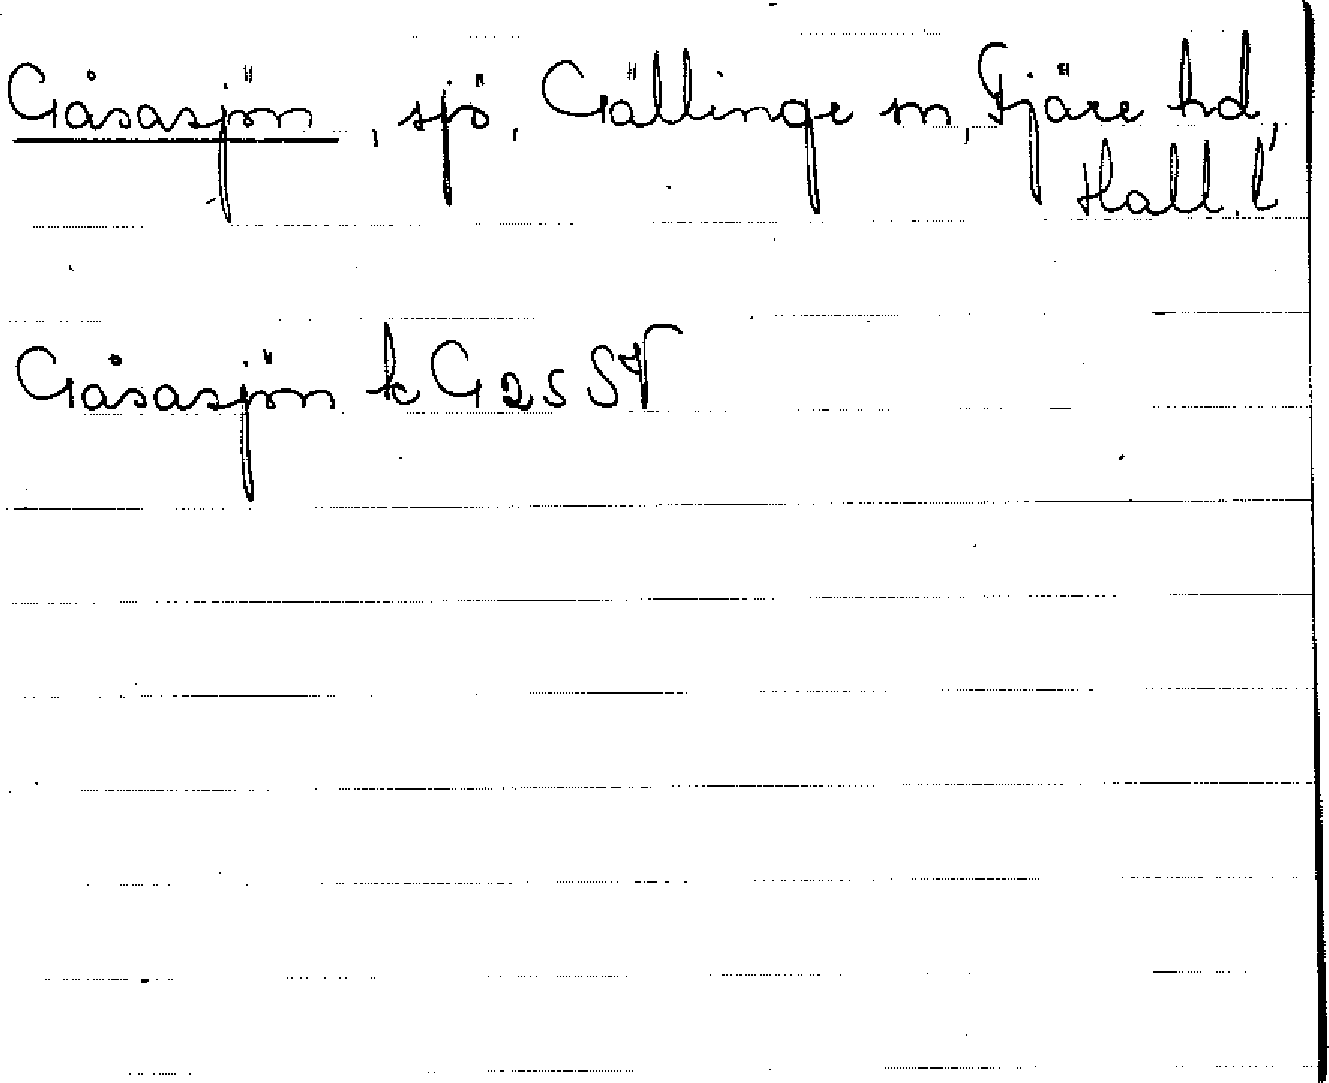 Gåsasjön, sjö, Gällinge sn, Fjäre hd,
Hall. l
Gåsasjön k G 25 SV